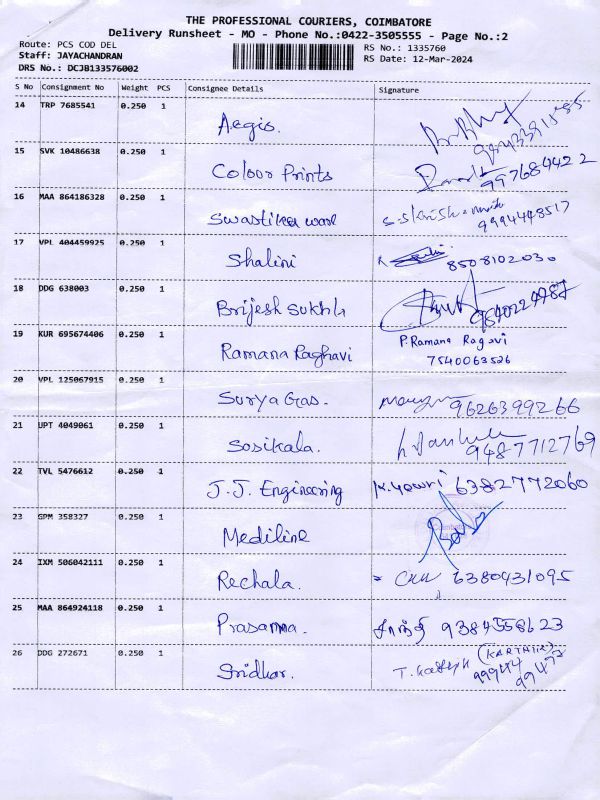 THE PROFESSIONAL COURIERS, COIMBATORE
Delivery Runsheet - MO - Phone No.:0422-3505555 - Page No.:2
Route: PCS COD DEL
RS No.: 1335760
Staff: JAYACHANDRAN
RS Date: 12-Mar-2024
DRS No.: DCJB133576002
S No Consignment No Weight PCS Consignee Details Signature
14 TRP 7685541 0.250 1
Aegis.
15 SVK 10486638 0.250 1
Colour Prints 997684422
16 MAA 864186328 0.250 1
Swastika
9994448517
17 VPL 404459925 0.250 1
Shalini 8508102030
18 DDG 638003 0.250 1
Brijesh Sukhla 9840224787
19 KUR 695674406 0.250 1
P. Ramana Ragavi
Ramana Raghavi
7540063526
20 VPL 125067915 0.250 1
Surya Gas. 9626399266
21 UPT 4049061 0.250 1
Sosikala. 9487712769
22 TVL 5476612 0.250 1
J.J. Engineering K. Gowri 6382772060
23 GPM 358327 0.250 1
Mediline
24 IXM 506042111 0.250 1
Rechala. 6380431095
25 MAA 864924118 0.250 1
Prasanna. சாந்தி 9384558623
26 DDG 272671 0.250 1
(KARTHIK)
Sridhar.